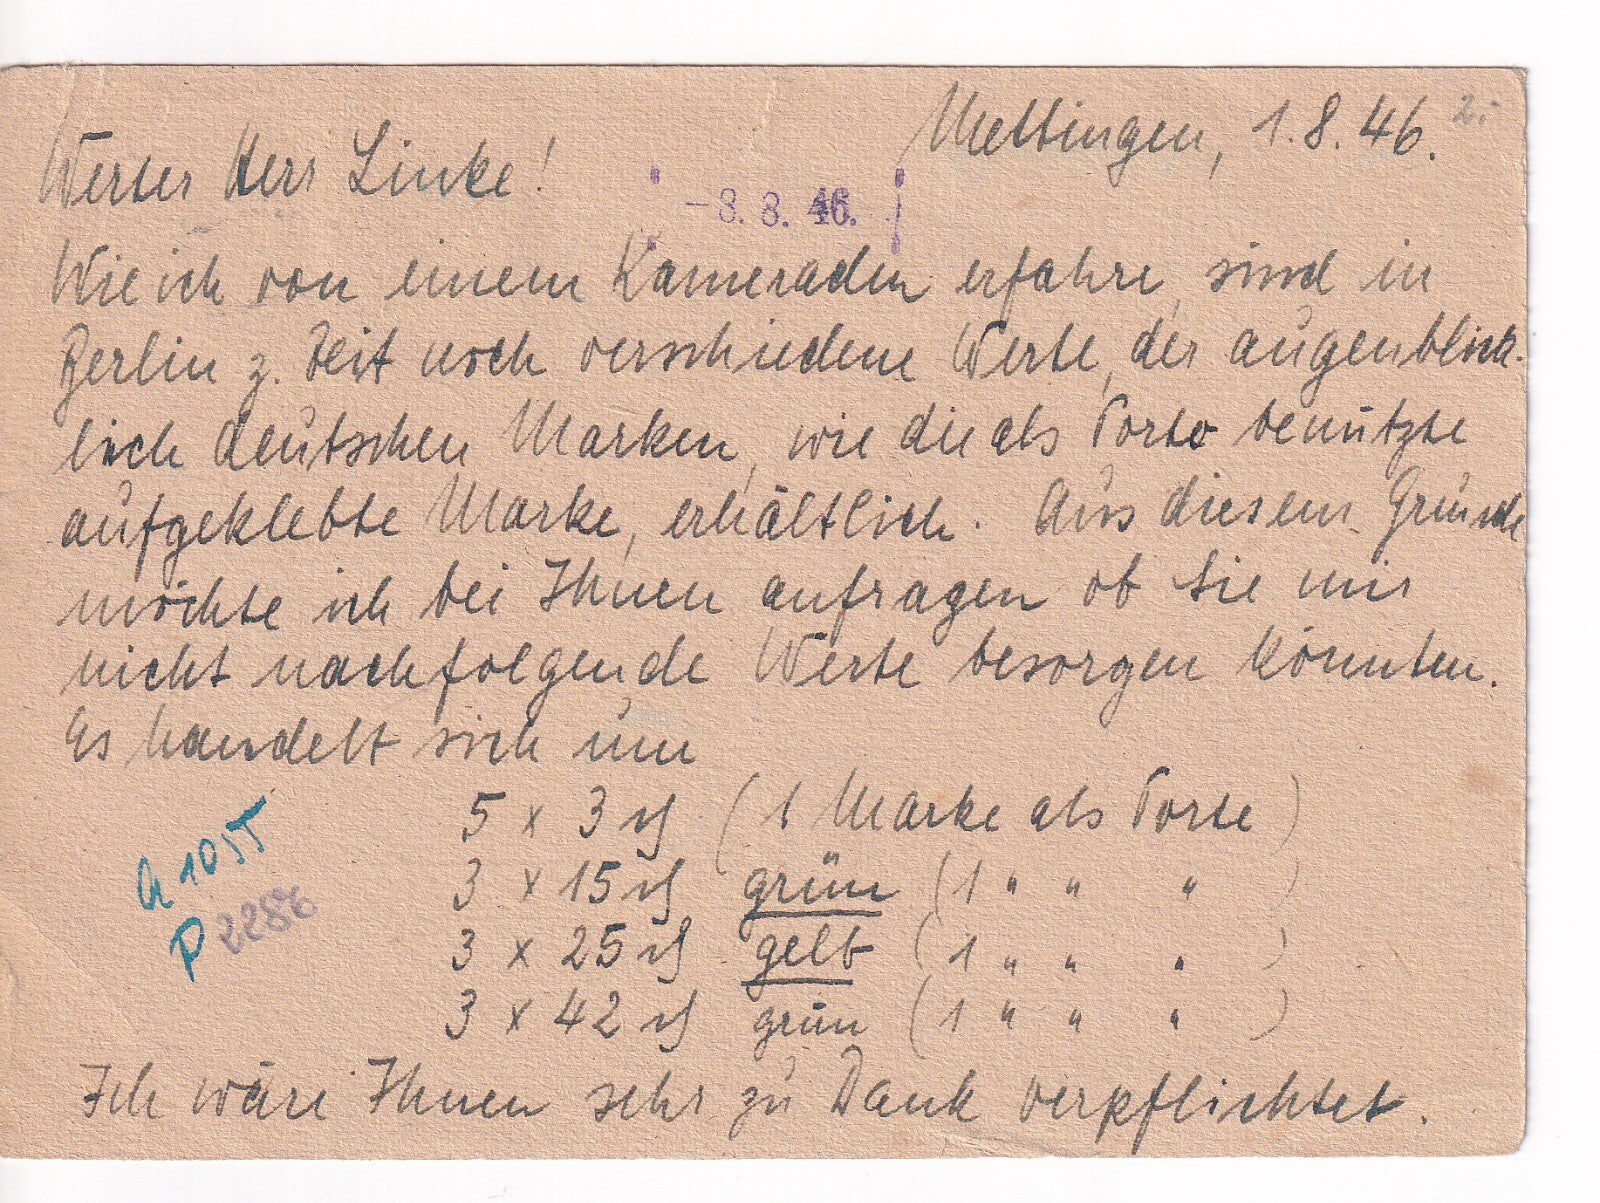 Mettingen, 1.8.46.
Werter Herr Linke!
-8. 8. 46.
Wie ich von einem Kameraden erfahre, sind in
Berlin z. Zeit noch verschiedene Werte, der augenblick-
lich deutschen Marken, wie die als Porto benützte
aufgeklebte Marke, erhältlich. Aus diesem Grunde
möchte ich bei Ihnen anfragen ob Sie mir
nicht nachfolgende Werte besorgen könnten.
Es handelt sich um
5 x 3 ₰ (1 Marke als Porto)
3 x 15 ₰ grün (1 " " ")
3 x 25 ₰ gelb (1 " " ")
3 x 42 ₰ grün (1 " " ")
Ich wäre Ihnen sehr zu Dank verpflichtet.
P 2286